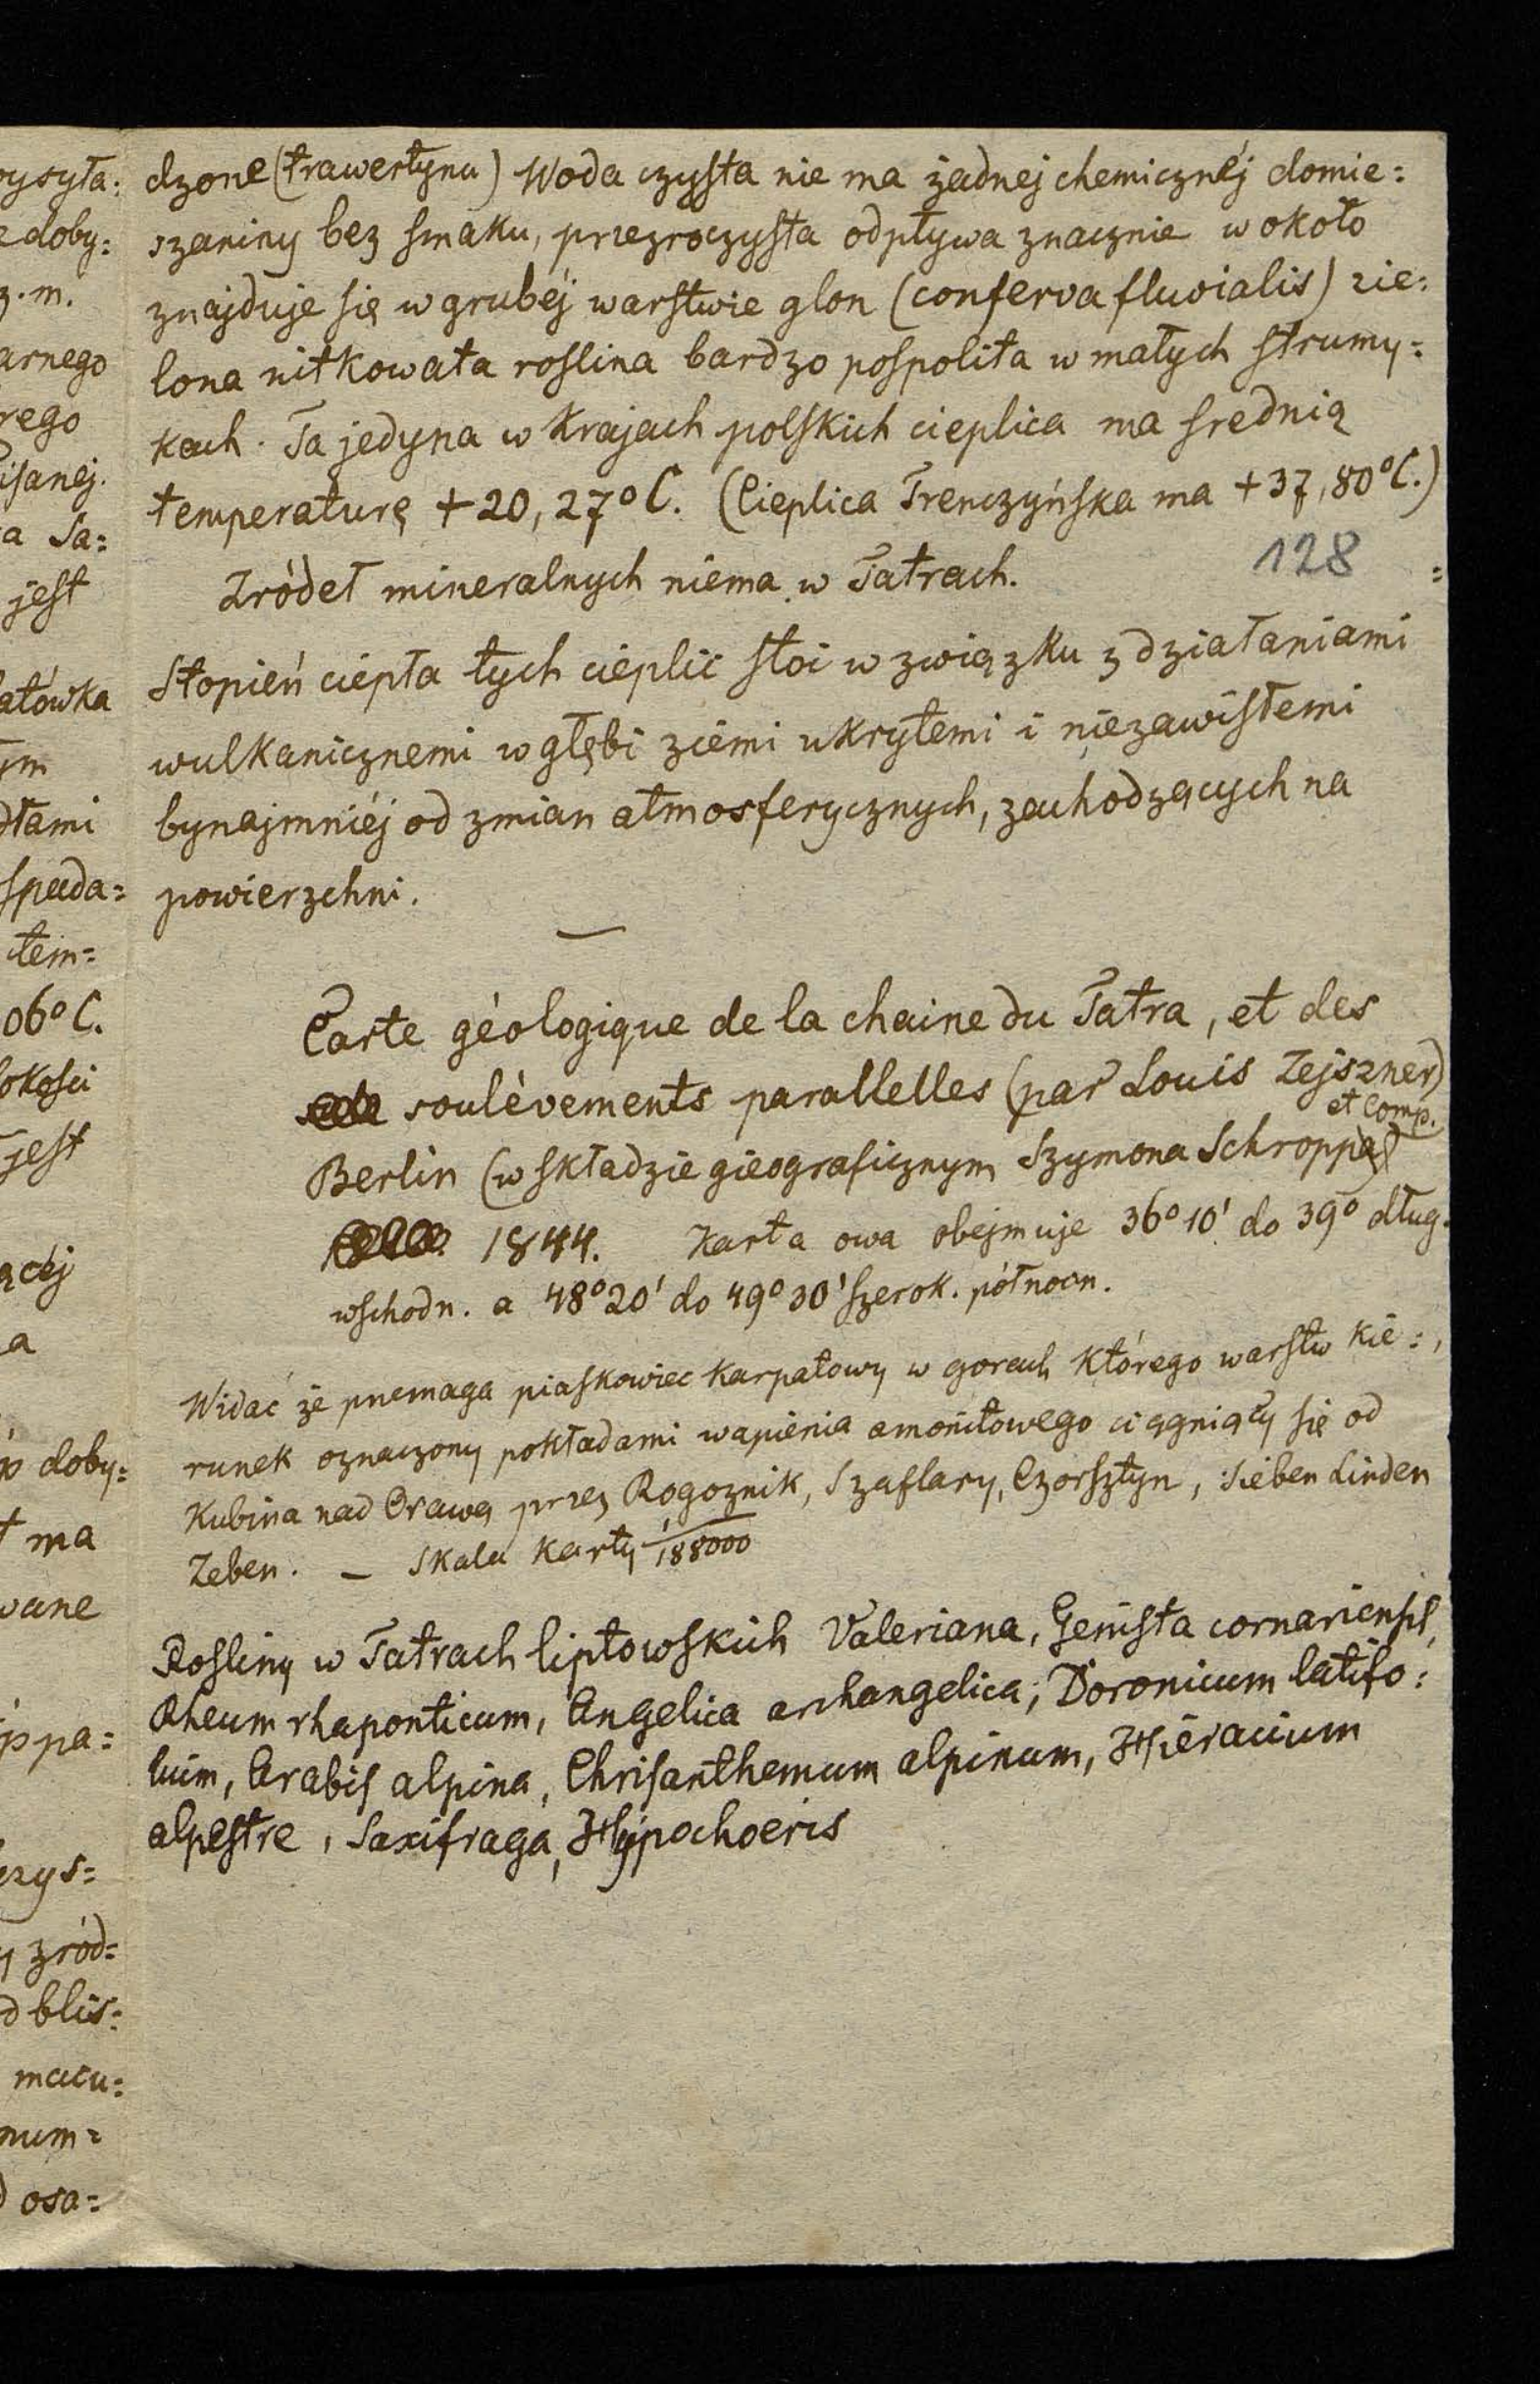 dzone (trawertynu) Woda czysta nie ma żadnej chemicznéj domie=
szaniny bez smaku, przezroczysta odpływa znacznie wokoło
znajduje się w grubéj warstwie glon (conferva fluvialis) zie=
lona nitkowata roslina bardzo pospolita w małych strumy=
kach. Ta jedyna w krajach polskich cieplica ma srednią
temperaturę +20,27° C. (Cieplica Trenczyńska ma +37,80° C.)
128
Zródeł mineralnych niema w Tatrach.
Stopień ciepła tych cieplic stoi w związku z działaniami
wulkanicznemi w głębi ziemi ukrytemi i niezawisłemi
bynajmniéj od zmian atmosferycznych, zachodzących na
powierzchni.
Carte géologique de la chaine du Tatra, et des
soulèvements parallelles (par Louis Zejszner)
et Comp.
Berlin (w składzie gieograficznym Szymona Schroppa)
1844. Karta owa obejmuje 36° 10' do 39° dług.
wschodn. a 48° 20' do 49° 30' szerok. północn.
Widać że przemaga piaskowiec karpatowy w gorach którego warstw kie=
runek oznaczony pokładami wapienia amonitowego ciągniąty się od
Kubina nad Orawą przez Rogoznik, Szaflary, Czorsztyn, Sieben Linden
Zeben. – Skala karty 1/188000
Rosliny w Tatrach liptowskich Valeriana, Genista cornariensis,
Rheum rhaponticum, Angelica archangelica, Doronicum latifo=
lium, Arabis alpina, Chrisanthemum alpinum, Hieracium
alpestre, Saxifraga, Hypochoeris
ysyła=
doby=
z. m.
arnego
rego
isanej.
a Sa=
jest
atówka
ym
dłami
spada=
tem=
06° C.
okości
jest
ącéj
a
p doby=
ma
wane
ppa=
zys=
zród=
d blis=
macu=
num=
osa=